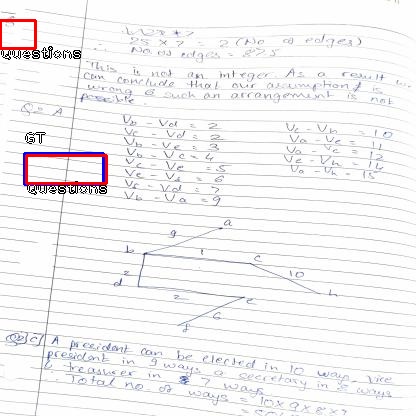 25 x 7 = 2 (No of edges)
No of edges = 87.5
This is not an integer. As a result
can conclude that our assumption is
wrong & such an arrangement is not
possible.
Questions
Q2 A
GT
Questions
Vb - Vd = 2
Vc - Vd = 2
Vb - Ve = 3
Vb - Vc = 4
Vc - Ve = 5
Ve - Vf = 6
Vf - Vd = 7
Vb - Va = 9
Vc - Vh = 10
Va - Ve = 11
Va - Vc = 12
Ve - Vh = 14
Va - Vh = 15
a
9
b
1
c
2
10
d
2
e
h
6
f
Q2 C] A president can be elected in 10 ways, vice
president in 9 ways a secretary in 8 ways
& treasurer in 7 ways
Total no of ways = 10 x 9 x 8 x 7